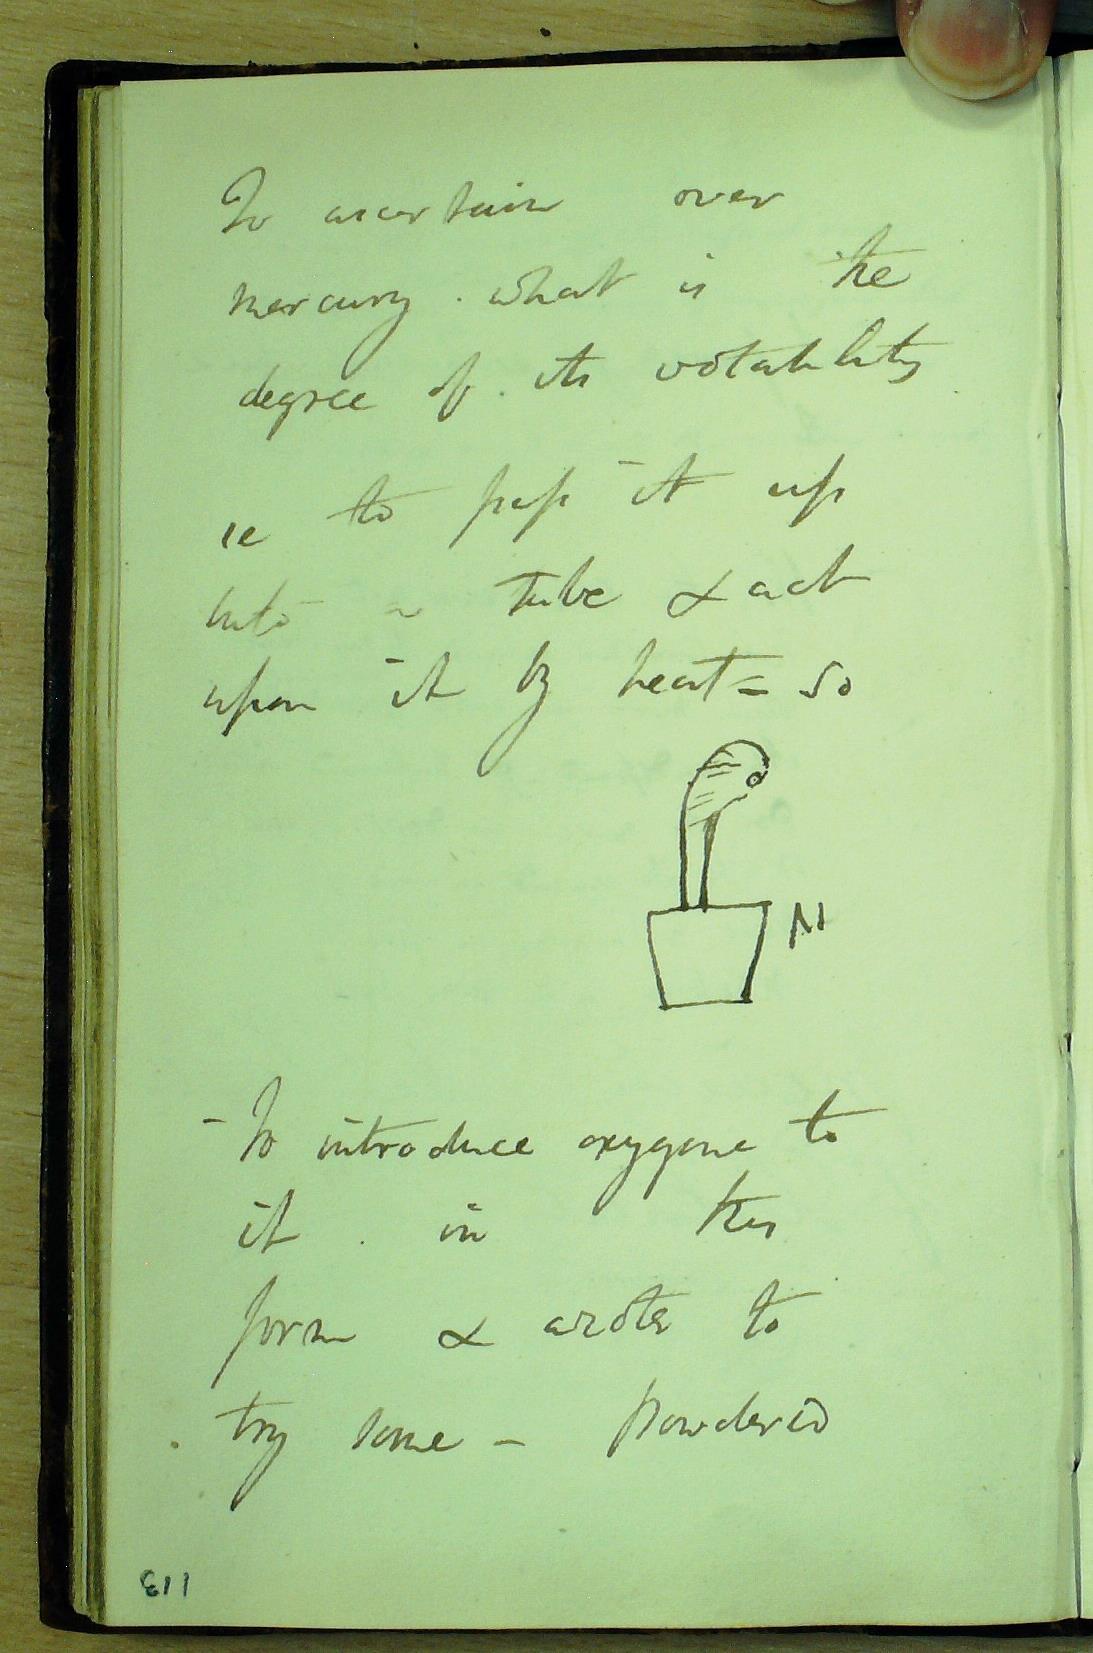 To ascertain over
mercury. what is the
degree of. its volatability
ie to pass it up
into a tube & act
upon it by heat = so
M
- To introduce oxygene to
it. in this
form & azote to
try some - powdered
113